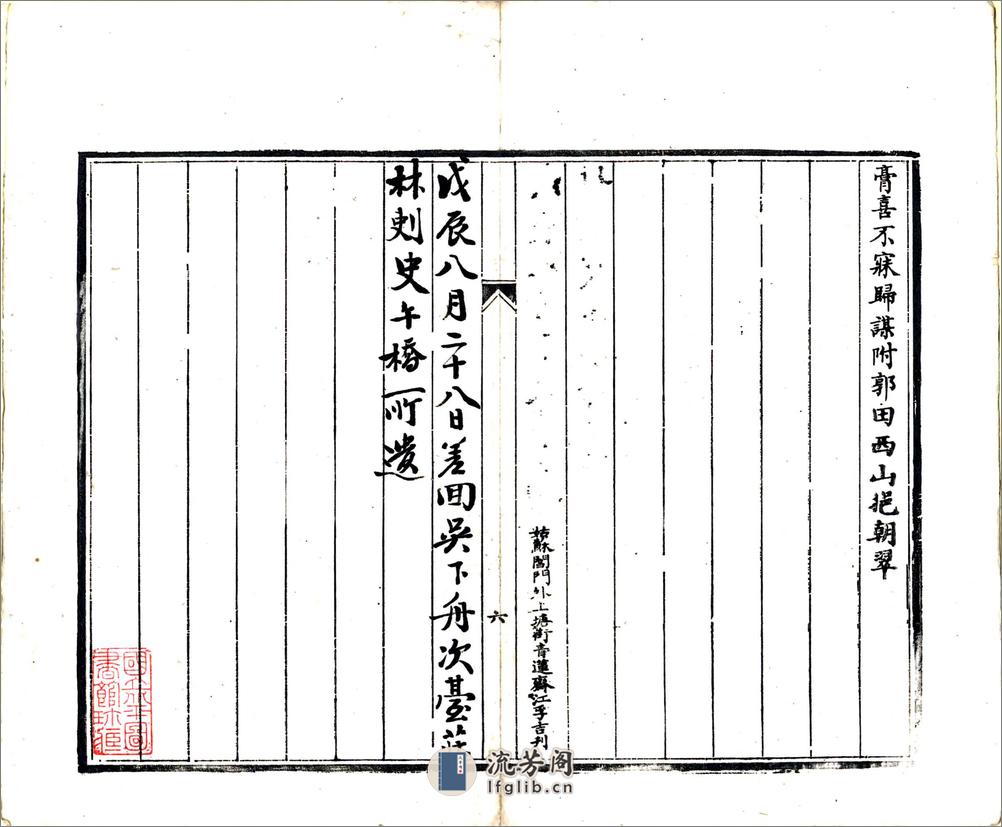 膏喜不寐歸謀附郭田西山挹朝翠
姑蘇閶門外上塘街青蓮齋江孚吉刊
六
戊辰八月二十八日差回吳下舟次臺莊
林刺史午橋所遺
國立中央圖
書館珍藏
流芳阁
lfglib.cn